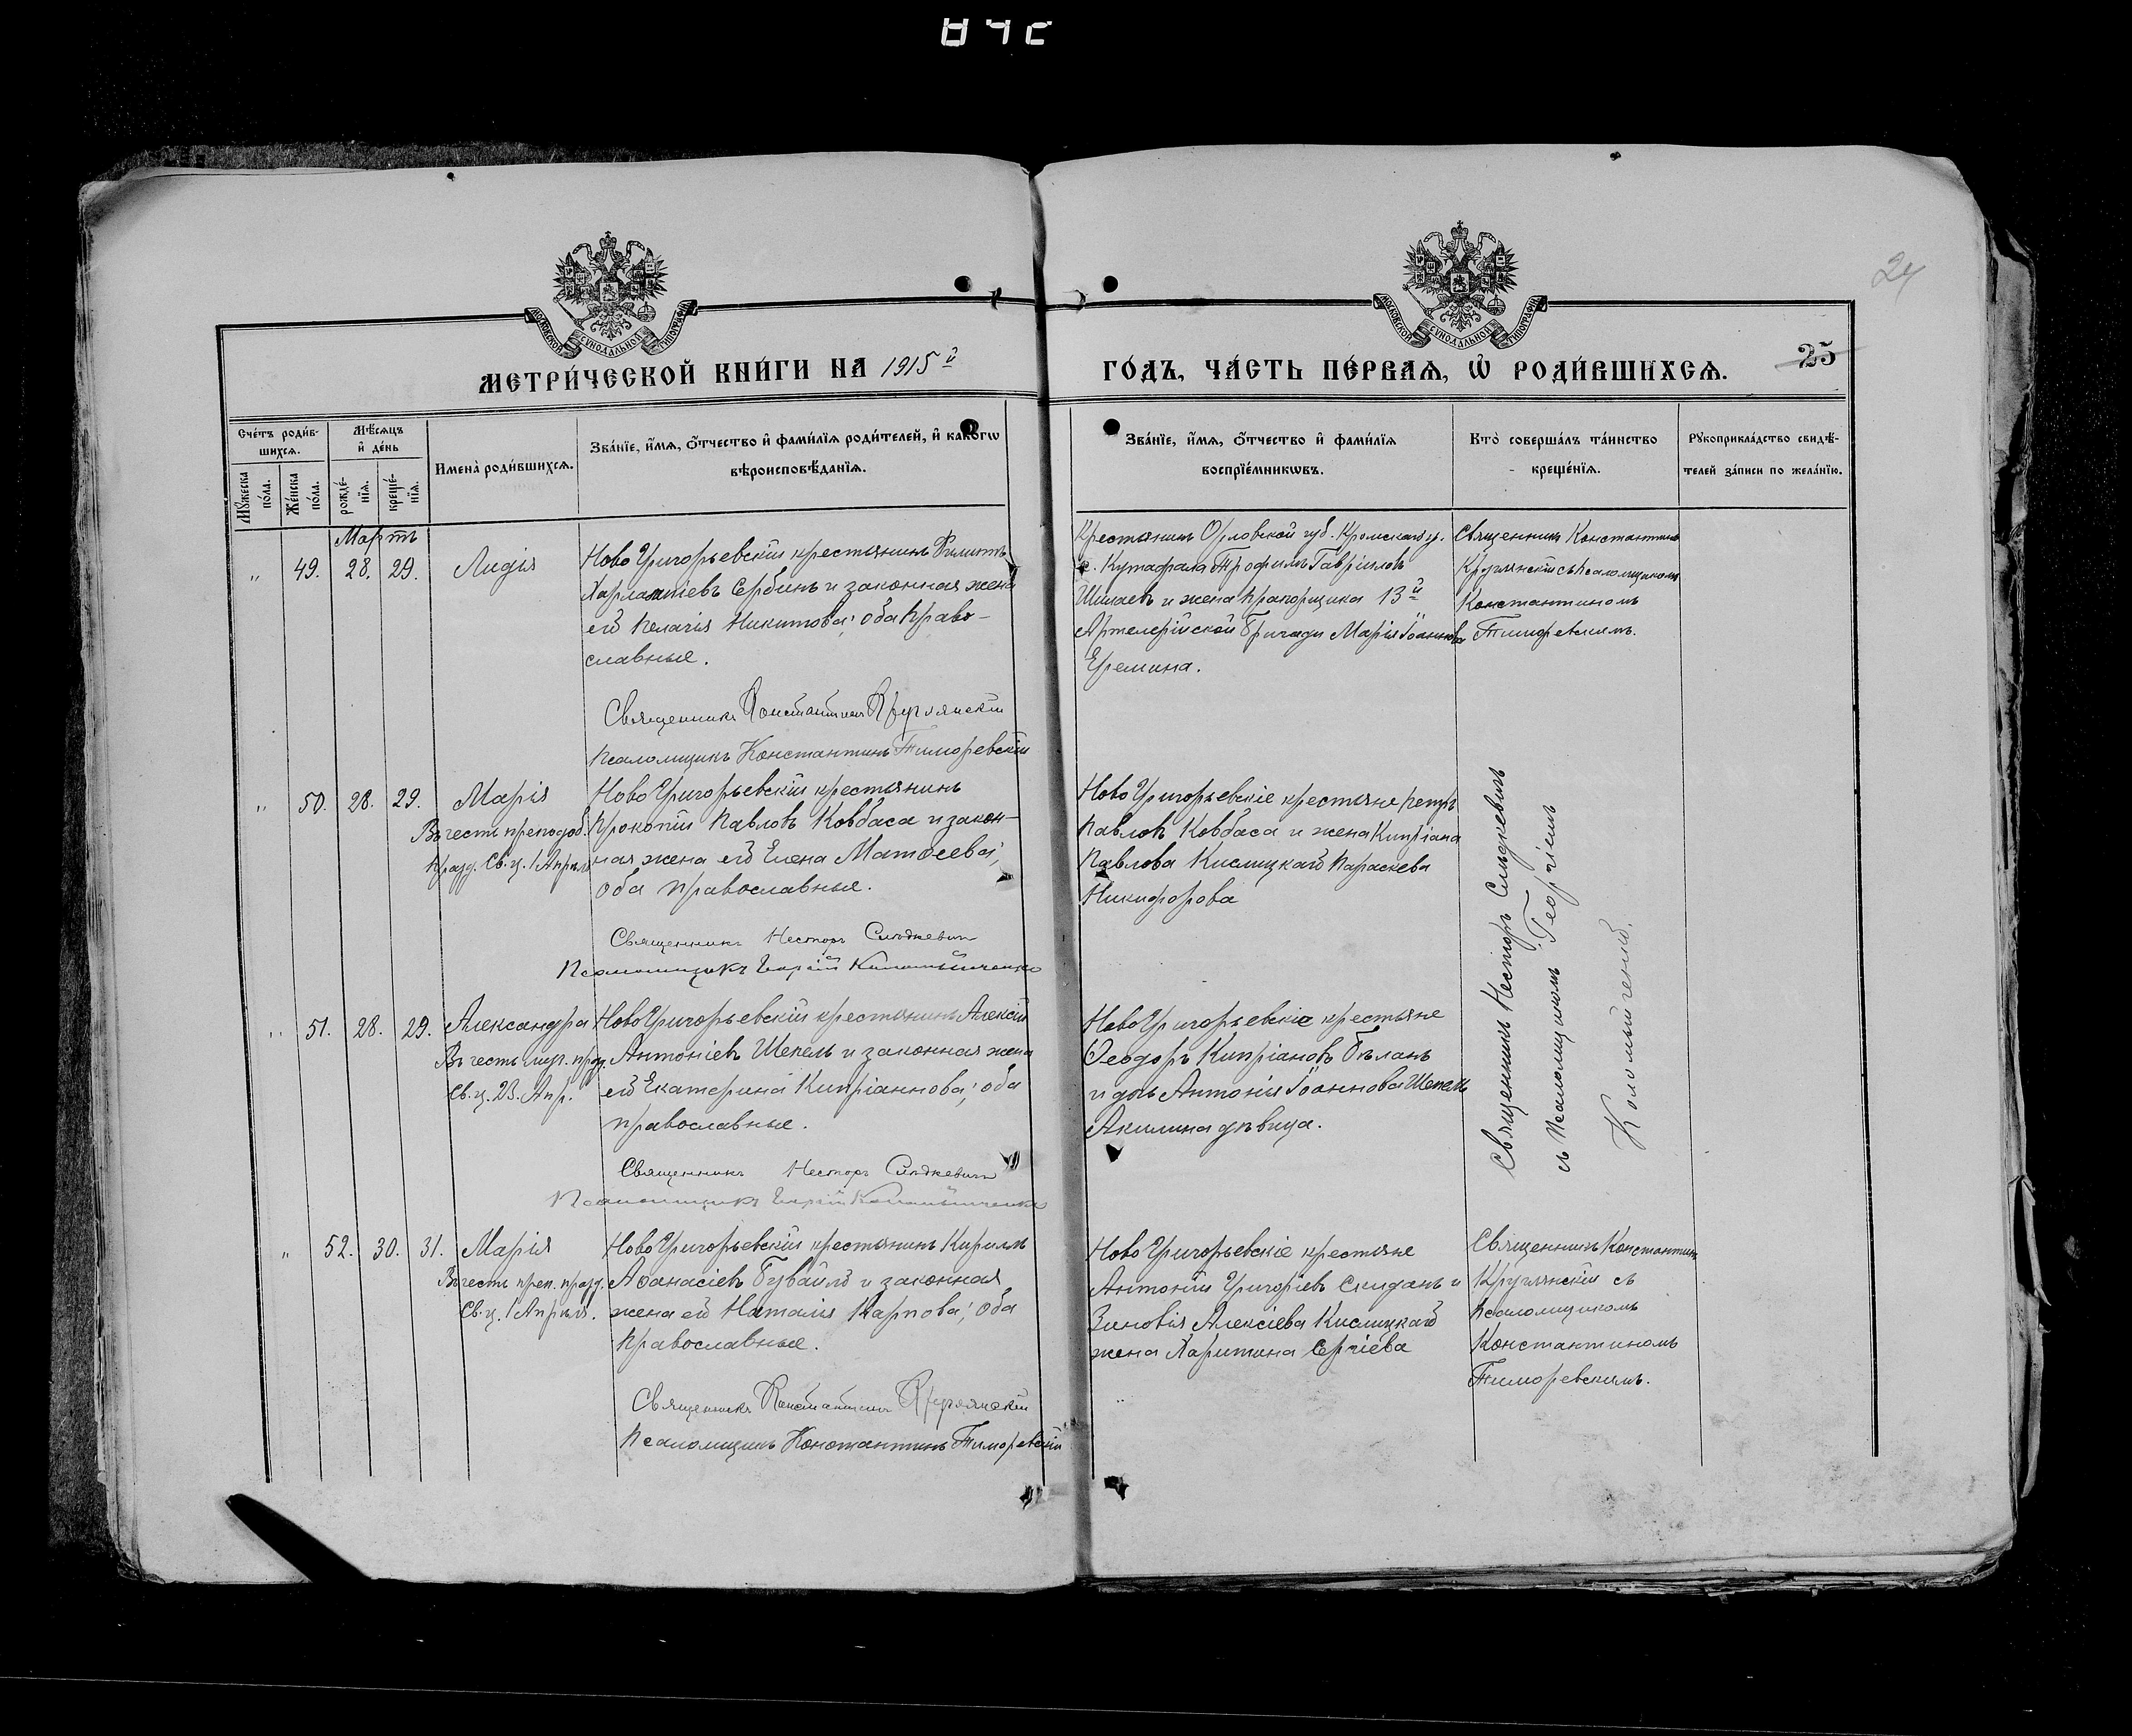 842
24
МОСКОВСКОЙ СѴНОДАЛЬНОЙ ТИПОГРАФІИ
МОСКОВСКОЙ СѴНОДАЛЬНОЙ ТИПОГРАФІИ
МЕТРИ́ЧЕСКОЙ КНИ́ГИ НА 1915й
ГО́ДЪ, ЧА́СТЬ ПЕ́РВАЯ, Ѡ РОДИ́ВШИХСЯ.
25
Сче́тъ роди́в-
шихся.
Мѣ́сяцъ
и де́нь
Мꙋ́жеска
по́ла.
Же́нска
по́ла.
рожде́-
нїя.
креще́-
нїя.
Имена̀ роди́вшихся.
Зва́нїе, и́мя, ѻ҆́тчество и҆ фами́лїя роди́телей, и҆ како́гѡ
вѣроисповѣ́данїя.
Зва́нїе, и́мя, ѻ҆́тчество и҆ фами́лїя
воспрїе́мникѡвъ.
Кто̀ соверша́лъ та́инство
креще́нїя.
Рꙋкоприкла́дство свидѣ́-
телей за́писи по жела́нїю.
Мартъ
„ 49. 28. 29. Лидія
Ново Григорьевскій крестьянинъ Филиппъ
Харлампіевъ Сербинъ и законная жена
его Пелагія Никитова; оба право-
славные.
Священникъ Константинъ Круглянскій
Псаломщикъ Константинъ Тиморевскій
Крестьянинъ Орловской губ. Кромскаго у.
с. Кутафина Трофимъ Гавриловъ
Шишаевъ и жена прапорщика 13й
Артелерійской Бригады Марія Іоаннова
Еремина.
Священникъ Константинъ
Круглянскій съ псаломщикомъ
Константиномъ
Тиморевскимъ.
„ 50. 28. 29. Марія
Въ честь преподоб.
празд. Св. ц. 1 Апрѣля
Ново Григорьевскій крестьянинъ
Прокопій Павловъ Ковбаса и закон-
ная жена его Елена Матѳеева;
оба православные.
Священникъ Несторъ Слѣдкевичъ
Псаломщикъ Георгій Коломыйченко
Ново Григорьевскіе крестьяне Петръ
Павловъ Ковбаса и жена Кипріана
Павлова Кислицкаго Параскева
Никифорова
Священникъ Несторъ Слѣдкевичъ
съ Псаломщикомъ Георгіемъ
Коломыйченко.
„ 51. 28. 29. Александра
Въ честь муч. празд.
Св. ц. 23. Апр.
Ново Григорьевскій крестьянинъ Алексій
Антоніевъ Шепель и законная жена
его Екатерина Кипріаннова; оба
православные.
Священникъ Несторъ Слѣдкевичъ
Псаломщикъ Георгій Коломыйченко
Ново Григорьевскіе крестьяне
Ѳеодоръ Кипріановъ Бѣланъ
и дочь Антонія Іоаннова Шепель
Акилина дѣвица.
„ 52. 30. 31. Марія
Въ честь преп. празд.
Св. ц. 1 Апрѣля.
Ново Григорьевскій крестьянинъ Кириллъ
Аѳанасіевъ Бувайло и законная
жена его Наталія Карпова; оба
православные.
Священникъ Константинъ Круглянскій
Псаломщикъ Константинъ Тиморевскій
Ново Григорьевскіе крестьяне
Антоній Григоріевъ Скиданъ и
Зиновія Алексіева Кислицкаго
жена Харитина Сергіева
Священникъ Константинъ
Круглянскій съ
псаломщикомъ
Константиномъ
Тиморевскимъ.